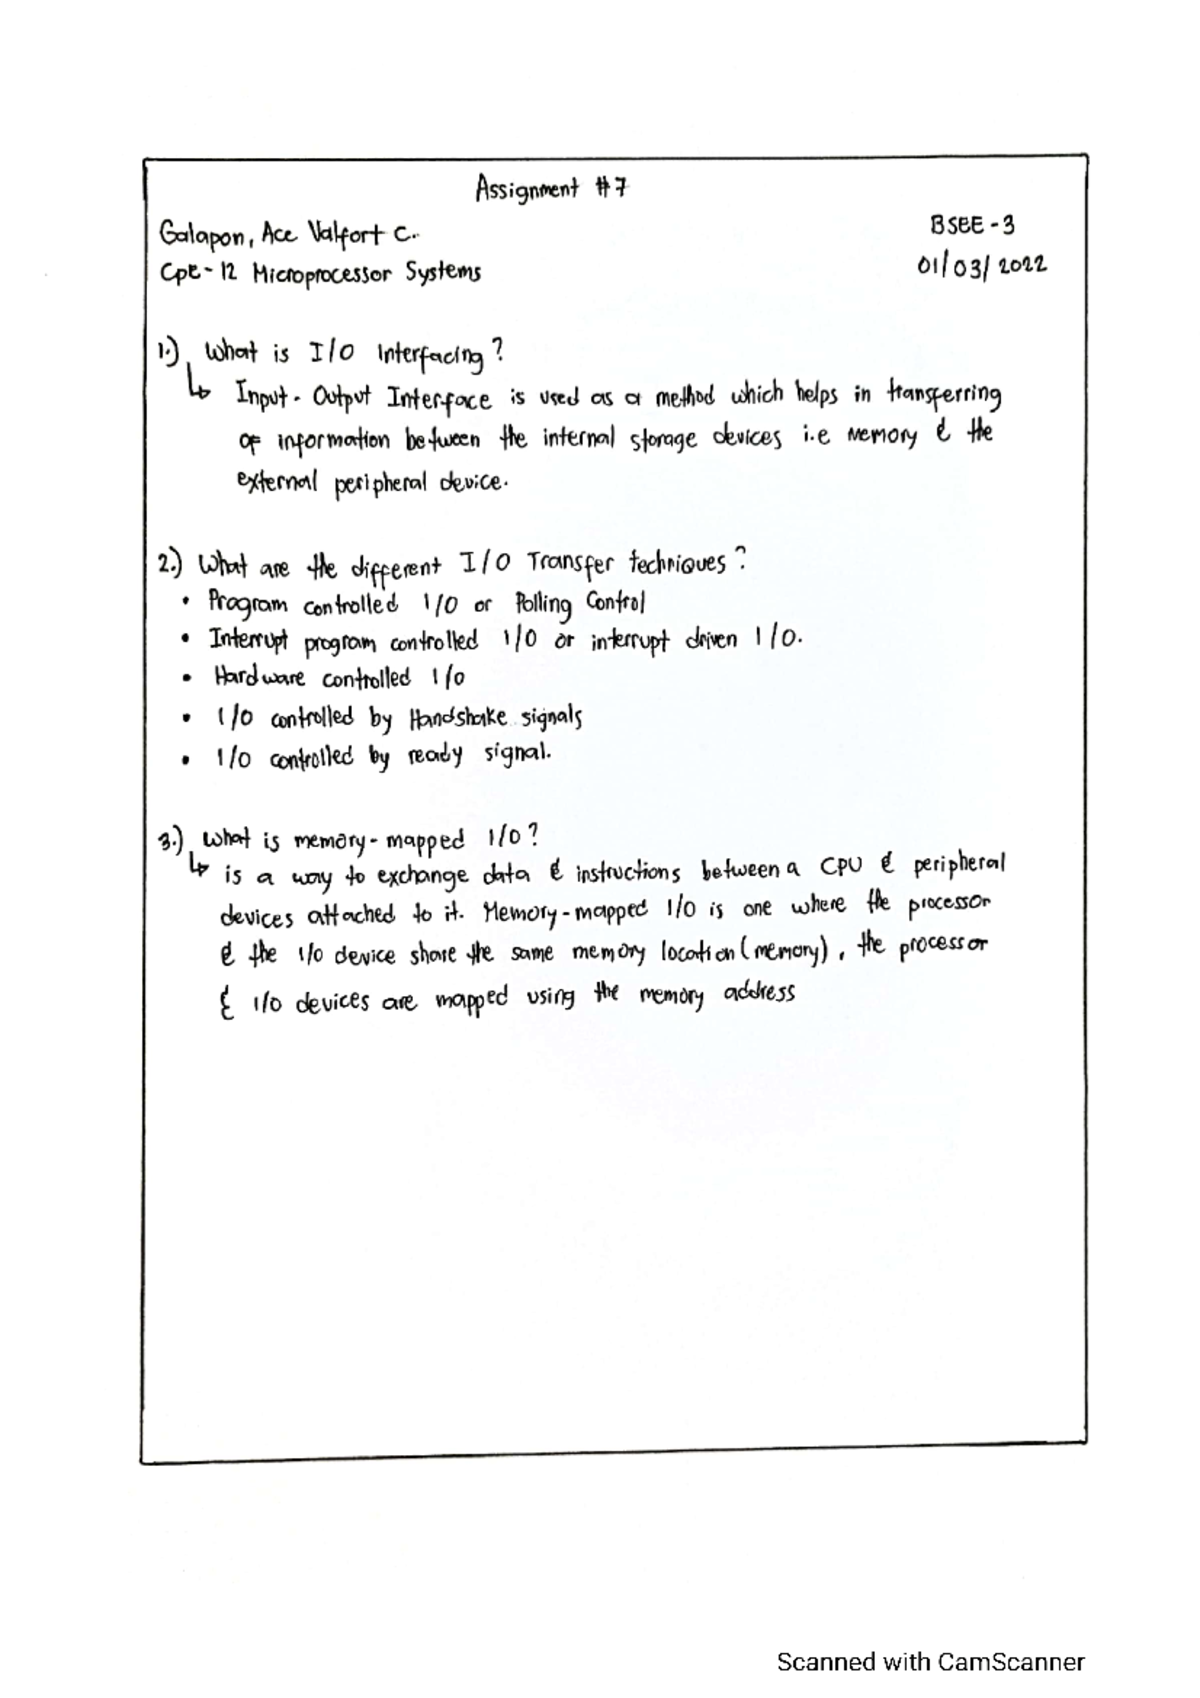 Assignment #7
Galapon, Ace Valfort C.
BSEE-3
CpE-12 Microprocessor Systems
01/03/2022
1.) What is I/O Interfacing?
↳ Input-Output Interface is used as a method which helps in transferring
of information between the internal storage devices i.e Memory & the
external peripheral device.
2.) What are the different I/O Transfer techniques?
• Program controlled I/O or Polling Control
• Interrupt program controlled I/O or interrupt driven I/O.
• Hardware controlled I/O
• I/O controlled by Handshake signals
• I/O controlled by ready signal.
3.) What is memory-mapped I/O?
↳ is a way to exchange data & instructions between a CPU & peripheral
devices attached to it. Memory-mapped I/O is one where the processor
& the I/O device share the same memory location (memory), the processor
& I/O devices are mapped using the memory address
Scanned with CamScanner